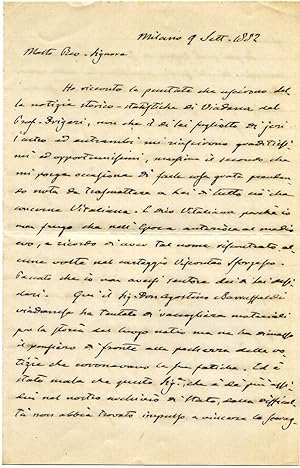 Milano 9 Sett. 1882
Molto Rev. Signore
Ho ricevuto le puntate che uscirono del
la notizia storico-statistiche di Viadana del
Prof. non che il di lei foglietto di jeri
l'altro ed entrambi mi riescirono graditissi
mi ed opportunissimi, massime il secondo che
mi porge occasione di farle cosa grata
nota da trasmettere a Lei di tutto ciò che
concerne Vitaliana. E dico Vitaliana perchè io
non che nell'epoca anteriore al medio
evo, e ricordo di aver tal nome riscontrato al
cune volte nel carteggio Visconteo Sforzesco.
Peccato che io non avessi sentore dei di lei desi
deri. Qui il Sig. Don Agostino
viadanese ha tentato di raccogliere materiali
per la storia del luogo natio ma ne ha dimesso
il pensiero di fronte alla pochezza delle no
tizie che coronavano le sue fatiche. Ed è
stato male che questo Sig. che è da più
nel nostro archivio di Stato, dalla difficol
tà non abbia trovato impulso a vincere la